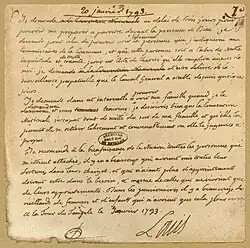 20 janvier 1793.
Je demande un délai de trois jours pour
pouvoir me préparer à paroître devant la présence de Dieu. je
demande pour cela de pouvoir
Commissaires de la Commune, et que cette personne soit à l'abri de toute
inquiétude et de toute crainte pour cet acte de charité qu'elle remplira auprès de
moi. je demande d'être délivré de la
surveillance perpétuelle que le Conseil Général a établie depuis quelques
jours.
Je demande dans cet intervalle à pouvoir voir ma famille quand je le
demanderai et sans témoins. je désirerois bien que la Convention
Nationale s'occupât tout de suite du sort de ma famille, et qu'elle lui
permît de se retirer librement et convenablement où elle le jugeroit à
propos.
Je recommande à la bienfaisance de la Nation toutes les personnes qui
m'étoient attachées, il y en a beaucoup qui avoient mis toute leur
fortune dans leurs charges, et qui n'ayant plus d'appointements
doivent être dans le besoin, et même de celles qui ne vivoient que
de leurs appointements. Dans les pensionnaires il y a beaucoup de
vieillards, de femmes et d'enfants qui n'avoient que cela pour vivre.
à la Tour du Temple le 20 janvier 1793.
Louis